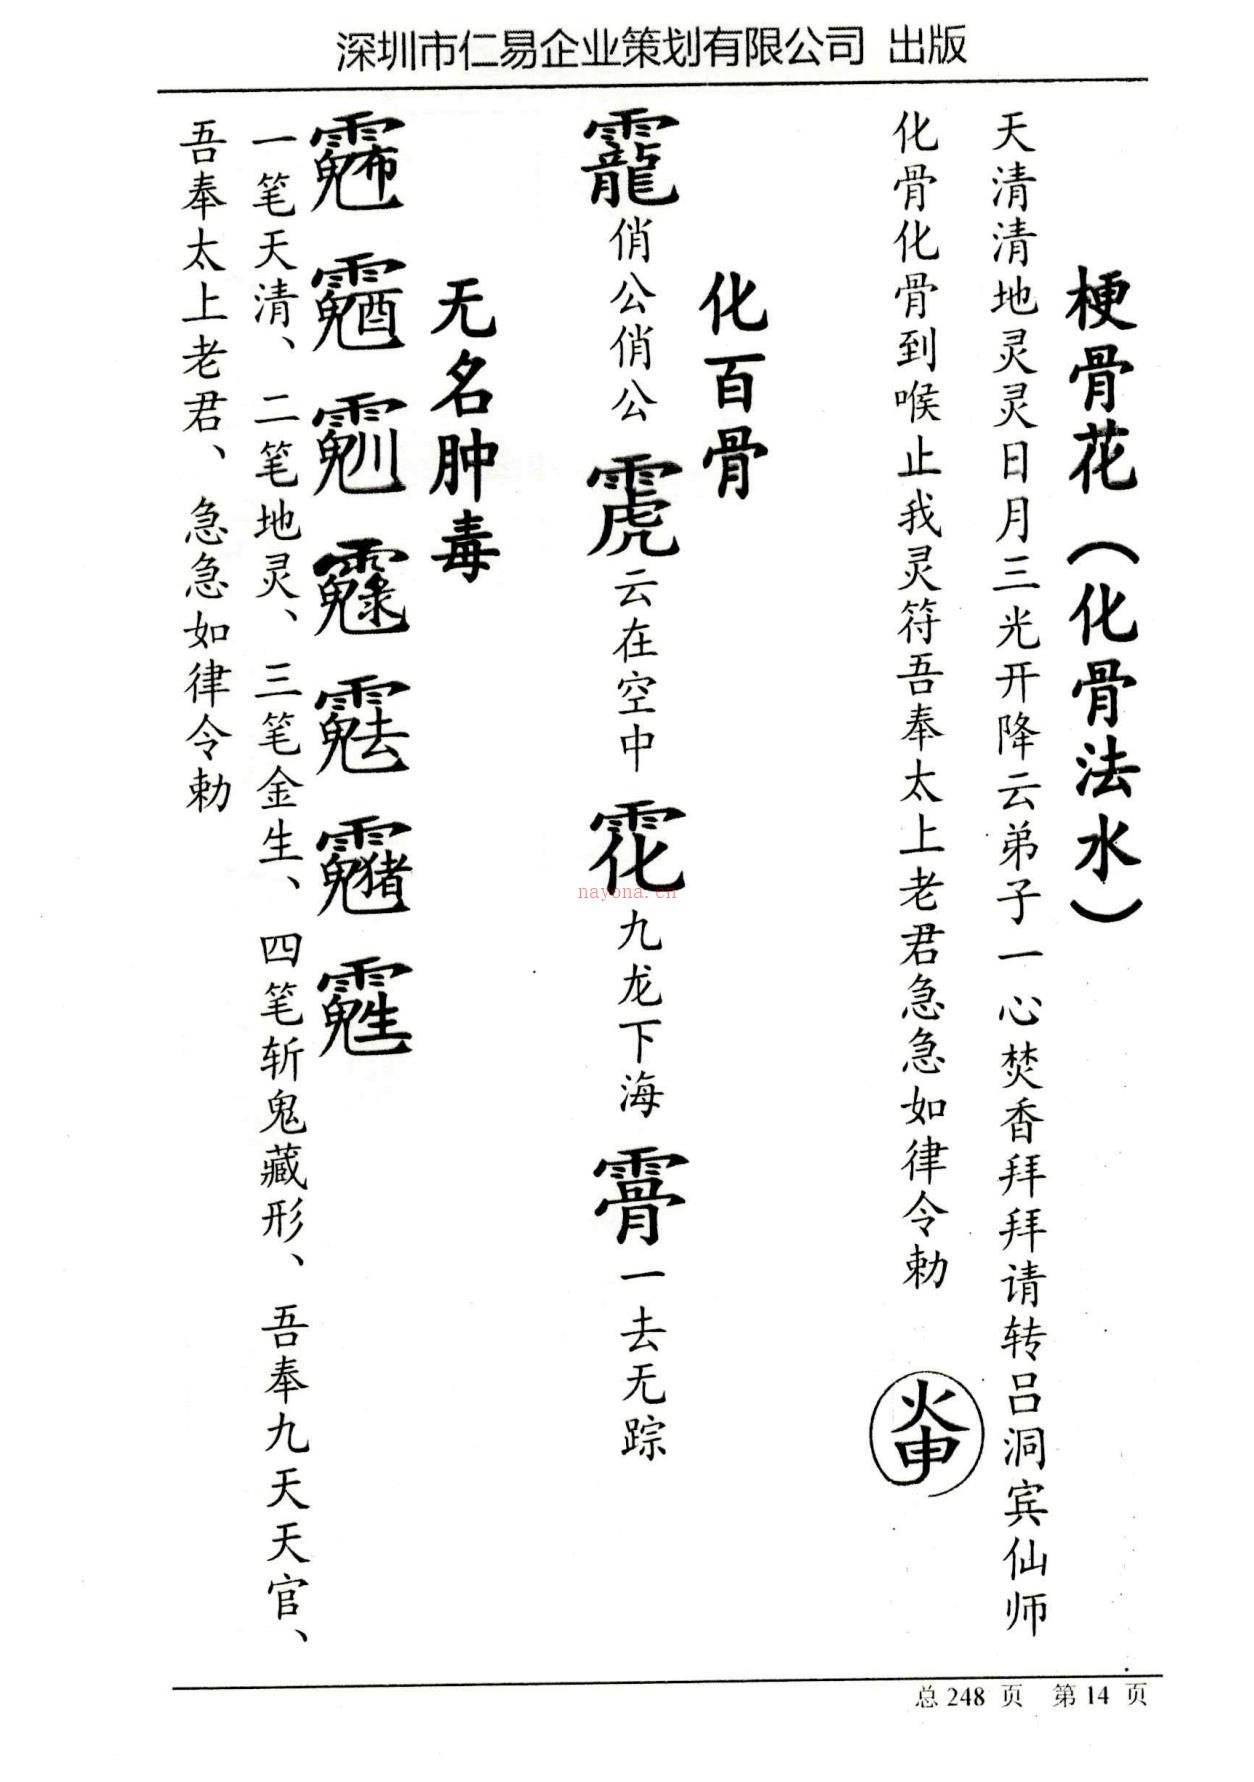 深圳市仁易企业策划有限公司 出版
梗骨花（化骨法水）
天清清地灵灵日月三光开降云弟子一心焚香拜拜请转吕洞宾仙师
化骨化骨到喉止我灵符吾奉太上老君急急如律令勅
化百骨
俏公俏公
云在空中
九龙下海
一去无踪
无名肿毒
一笔天清、二笔地灵、三笔金生、四笔斩鬼藏形、吾奉九天天官、
吾奉太上老君、急急如律令勅
nayona.cn
总 248 页 第 14 页